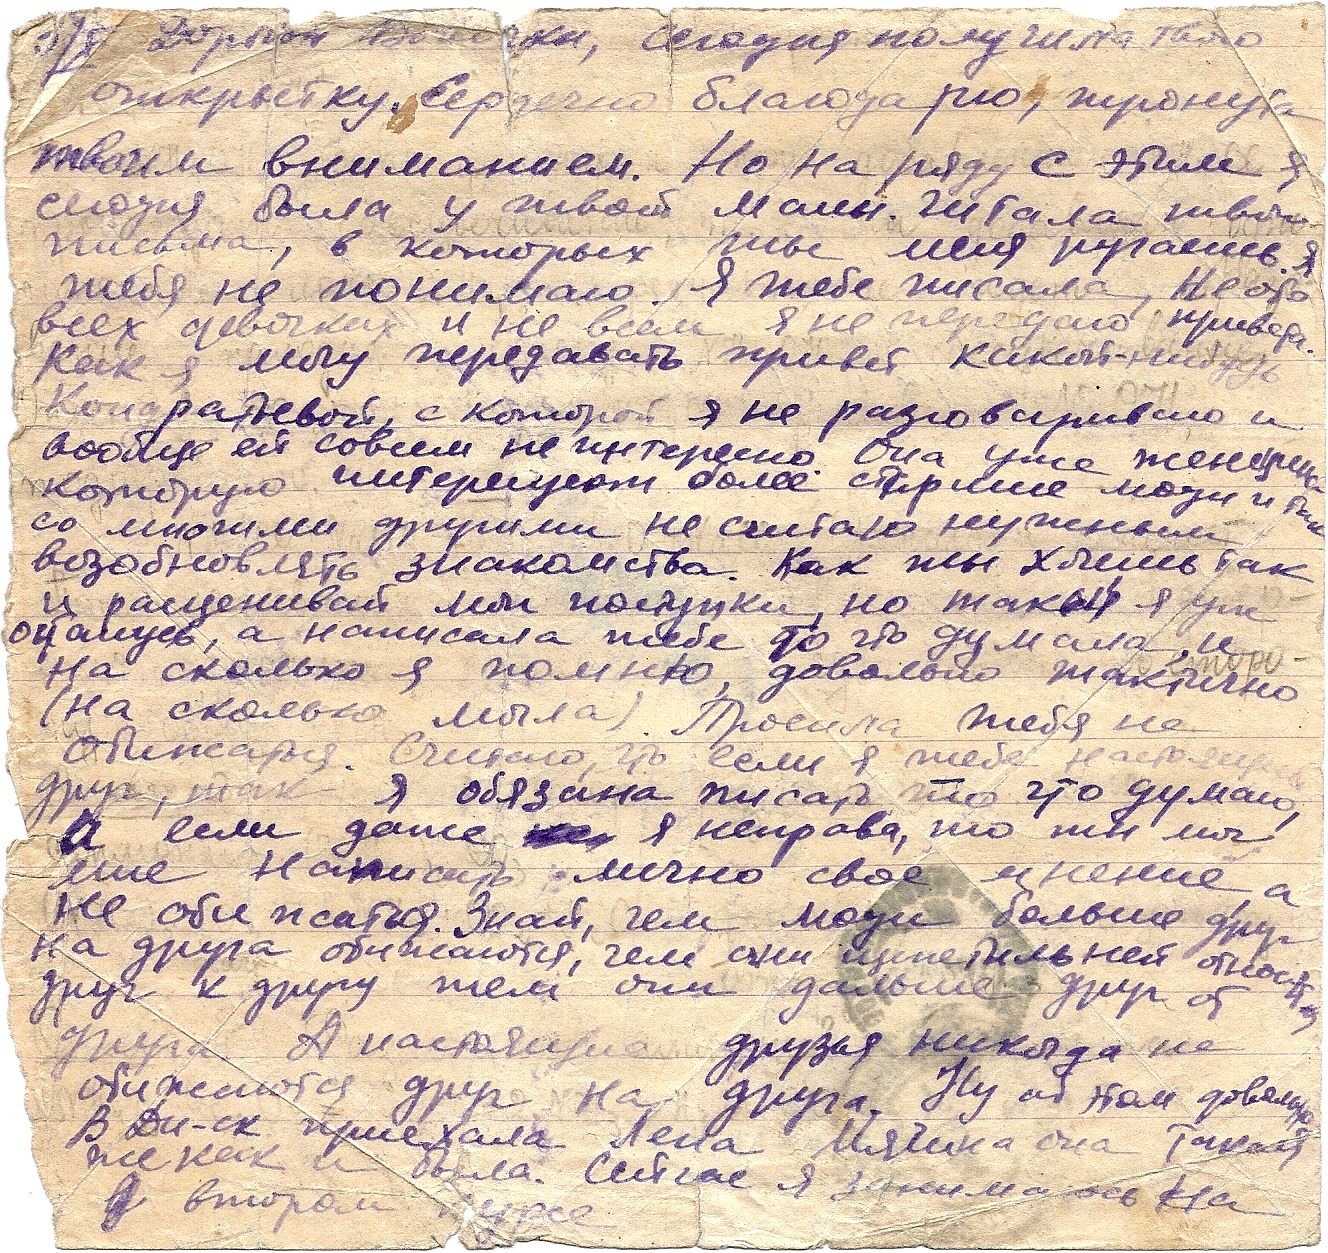 сегодня получила твою
открытку. Сердечно благодарю, тронута
твоим вниманием. Но на ряду с этим я
сегодня была у твоей мамы. Читала твои
письма, в которых ты меня ругаешь. Я
тебя не понимаю. Я тебе писала, не обо
всех девочках и не всем я не передаю привета.
Как я могу передавать привет какой-нибудь
Кондратьевой, с которой я не разговариваю и
вообще ей совсем не интересно. Она уже женщина
которую интересуют более старшие люди и так
со многими другими не считаю нужным
возобновлять знакомства. Как ты хочешь так
и расценивай мои поступки, но такой я уж
а написала тебе то что думала и
на сколько я помню, довольно тактично
(на сколько могла). Просила тебя не
обижаться. Считаю, что если я тебе настоящий
друг, так я обязана писать то что думаю,
а если даже я неправа, то ты мог
мне написать лично свое мнение, а
не обижаться. Знай, чем люди больше друг
на друга обижаются, чем они щепетильней относятся
друг к другу тем они дальше друг от
друга. А настоящие друзья никогда не
обижаются друг на друга. Ну об этом довольно.
В Дн-ск приехала Лена она такая
же как и была. Сейчас я занимаюсь на
втором курсе